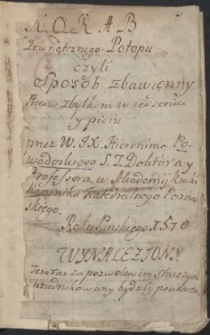 KORAB
Zewnętrznego Potopu
czyli
Sposób zbawienny
Przeciw zbytkom w iedzeniu
y piciu
przez W. JX. Hieronima Po
wodowskiego S. T. Doktora y
Professora w Akademij
Kanonika Katedralnego Pozna
skiego.
Roku Pańskiego 1578
WYNALEZIONY
Teraz za pozwoleniem starszych